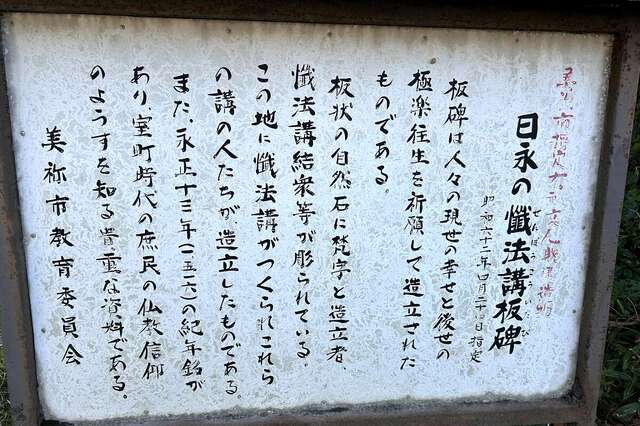 美祢市指定有形文化財
日永の懺法講板碑
せんぽうこういたび
指定
板碑は人々の現世の幸せと後世の
極楽往生を祈願して造立された
ものである。
板状の自然石に梵字と造立者、
懺法講結衆等が彫られている。
この地に懺法講がつくられこれら
の講の人たちが、造立したものである。
また、永正十三年(一五一六)の紀年銘が
あり、室町時代の庶民の仏教信仰
のようすを知る貴重な資料である。
美祢市教育委員会